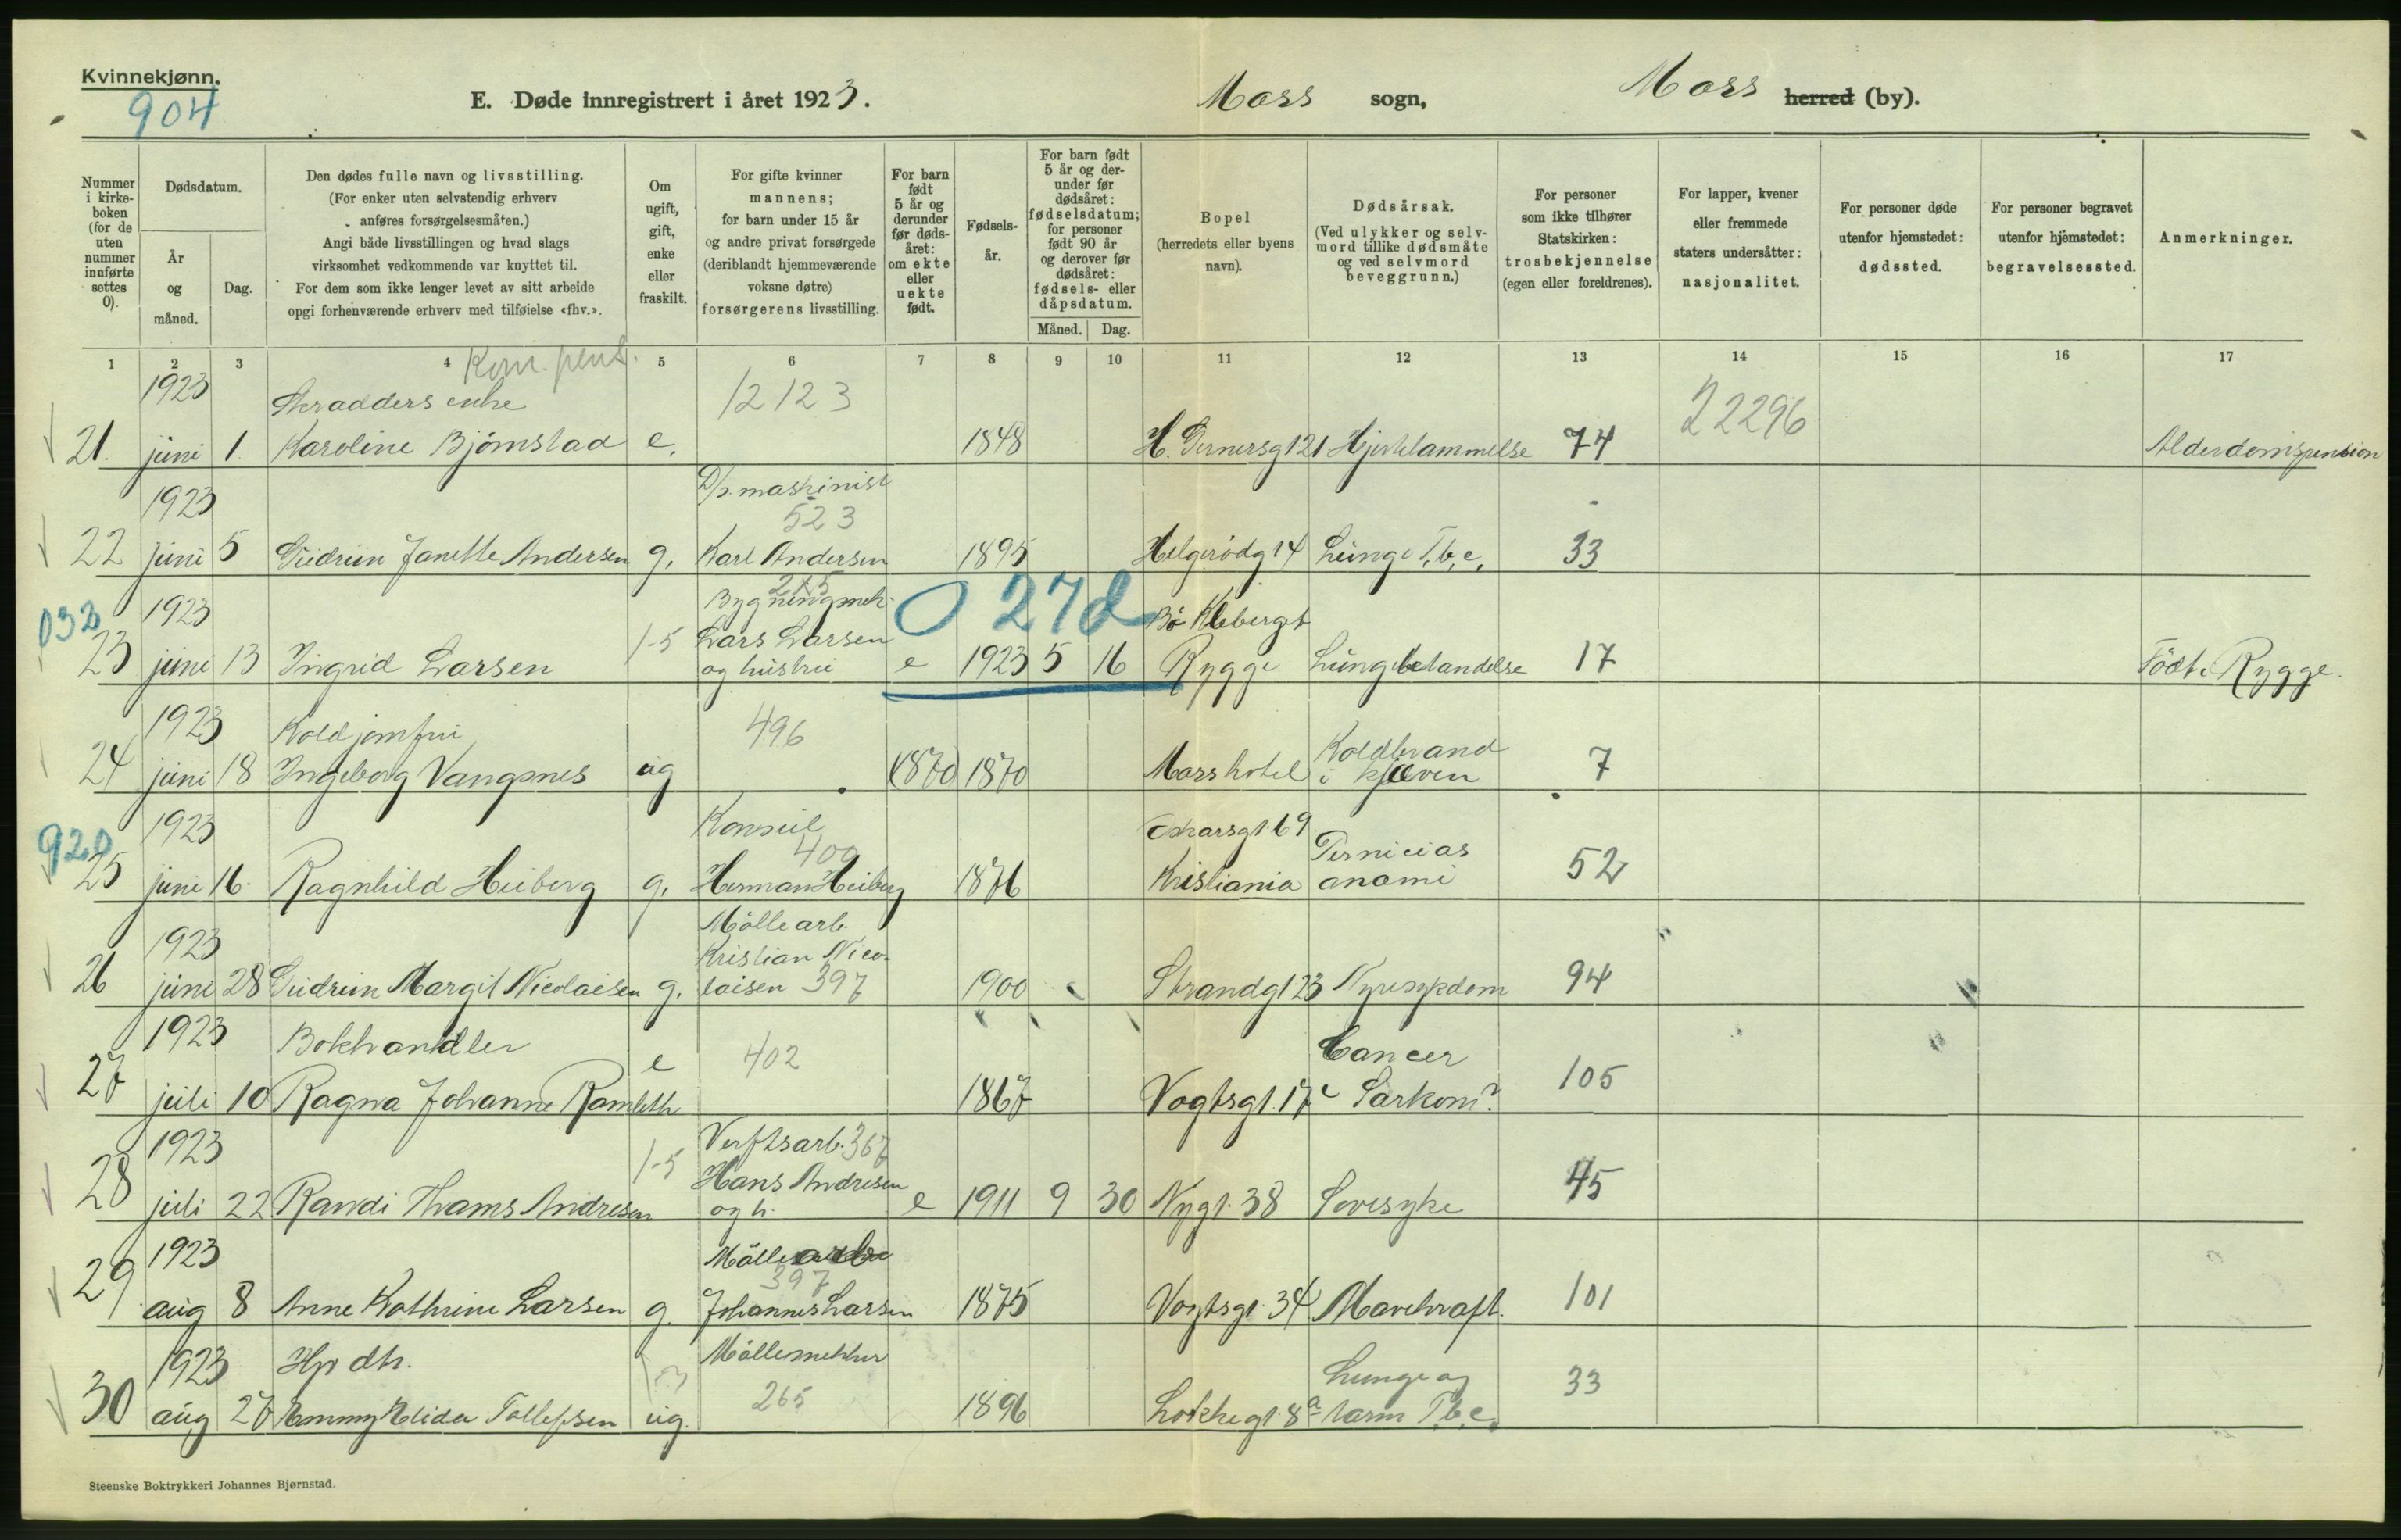 Kvinnekjønn.
904
E. Døde innregistrert i året 1923.
Moss sogn,
Moss herred (by).
Nummer i kirke-boken (for de uten nummer innførte settes 0).
Dødsdatum.
År og måned.
Dag.
Den dødes fulle navn og livsstilling.
(For enker uten selvstendig erhverv
anføres forsørgelsesmåten.)
Angi både livsstillingen og hvad slags
virksomhet vedkommende var knyttet til.
For dem som ikke lenger levet av sitt arbeide
opgi forhenværende erhverv med tilføielse «fhv.».
Om ugift, gift, enke eller fraskilt.
For gifte kvinner
mannens;
for barn under 15 år
og andre privat forsørgede
(deriblandt hjemmeværende
voksne døtre)
forsørgerens livsstilling.
For barn født 5 år og derunder før døds-året: om ekte eller uekte født.
Fødsels-år.
For barn født 5 år og der-under før dødsåret: fødselsdatum; for personer født 90 år og derover før dødsåret: fødsels- eller dåpsdatum.
Måned. Dag.
Bopel
(herredets eller byens
navn).
Dødsårsak.
(Ved ulykker og selv-
mord tillike dødsmåte
og ved selvmord
beveggrunn.)
For personer
som ikke tilhører
Statskirken:
trosbekjennelse
(egen eller foreldrenes).
For lapper, kvener
eller fremmede
staters undersåtter:
nasjonalitet.
For personer døde
utenfor hjemstedet:
dødssted.
For personer begravet
utenfor hjemstedet:
begravelsessted.
Anmerkninger.
1 2 3 4 5 6 7 8 9 10 11 12 13 14 15 16 17
Kom. pens.
1923 Skradders enke 12123 22296
21. juni 1. Karoline Bjørnstad e. 1848 H. Gernersg 121 Hjertelammelse 74 Alderdomspension
1923 D/s. maskinist
523
22 juni 5 Gudrun Janette Andersen g. Karl Andersen 1895 Helgerødg 14 Lunge T.b.c. 33
032 1923 Bygningsnek. 215 0 272 Bö Kleberget
1-5 Lars Larsen
23 juni 13 Ingrid Larsen og hustru e 1923 5 16 Rygge Lungebetandelse 17 Födt i Rygge.
1923 Koldjomfru 496 Koldbrand
24 juni 18 Ingeborg Vangsnes ug 1870 1870 Moss hotel i kjæven 7
920 1923 Konsul 400 Oskarsgt. 69 Pernicias
25 juni 16. Ragnhild Heiberg g. Herman Heiberg 1876 Kristiania anæmi 52
Möllearb.
1923 Kristian Nico-
26 juni 28 Gudrun Margit Nicolaisen g. laisen 397 1900 Strandgt 23 Nyresykdom 94
1923 Bokhandler e 402 Cancer
27 juli 10 Ragna Johanne Ramleth 1867 Vogtsgt. 17c Sarkom? 105
1923 Verftsarb. 367
1-5 Hans Andresen
28 juli 22 Randi Thams Andresen og h. e 1911 9 30 Nygt. 38 Sovesyke 45
1923 Möllearb
397
29 aug 8 Anne Kathrine Larsen g. Johannes Larsen 1875 Vogtsgt. 34 Mavekræft. 101
1923 Hp dtr. Möllesnekker Lunge og
30 aug 27 Emmy Elida Tollefsen ug. 265 1896 Lokkegt. 8a tarm T.b.c. 33
Steenske Boktrykkeri Johannes Bjørnstad.